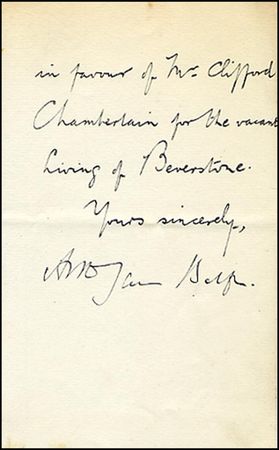 in favour of Mr Clifford
Chamberlain for the vacant
living of Beverstone.
Yours sincerely,
Arthur James Balfour